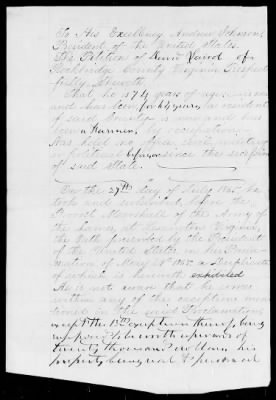 To His Excellency Andrew Johnson,
President of the United States.
The Petition of of
Rockbridge County Virginia Respect-
fully Sheweth
That he is 74 years of age
and has been for 64 years a resident
of said County is now and has
been a by occupation
Has held no civil military
or since the secession
of said State.
On the 27th day of July 1865 he
took and subscribed before the
Provost Marshall of the Army of
the at Lexington Virginia,
the Oath prescribed by the President
of the United States in his Procla-
mation of May 29th 1865, a Duplicate
of which is herewith exhibited
He is not aware that he comes
within any of the exceptions men-
tioned in the said Proclamation
except the 13th exception thereof, being
worth upwards of
twenty thousand dollars, his
property being real & personal